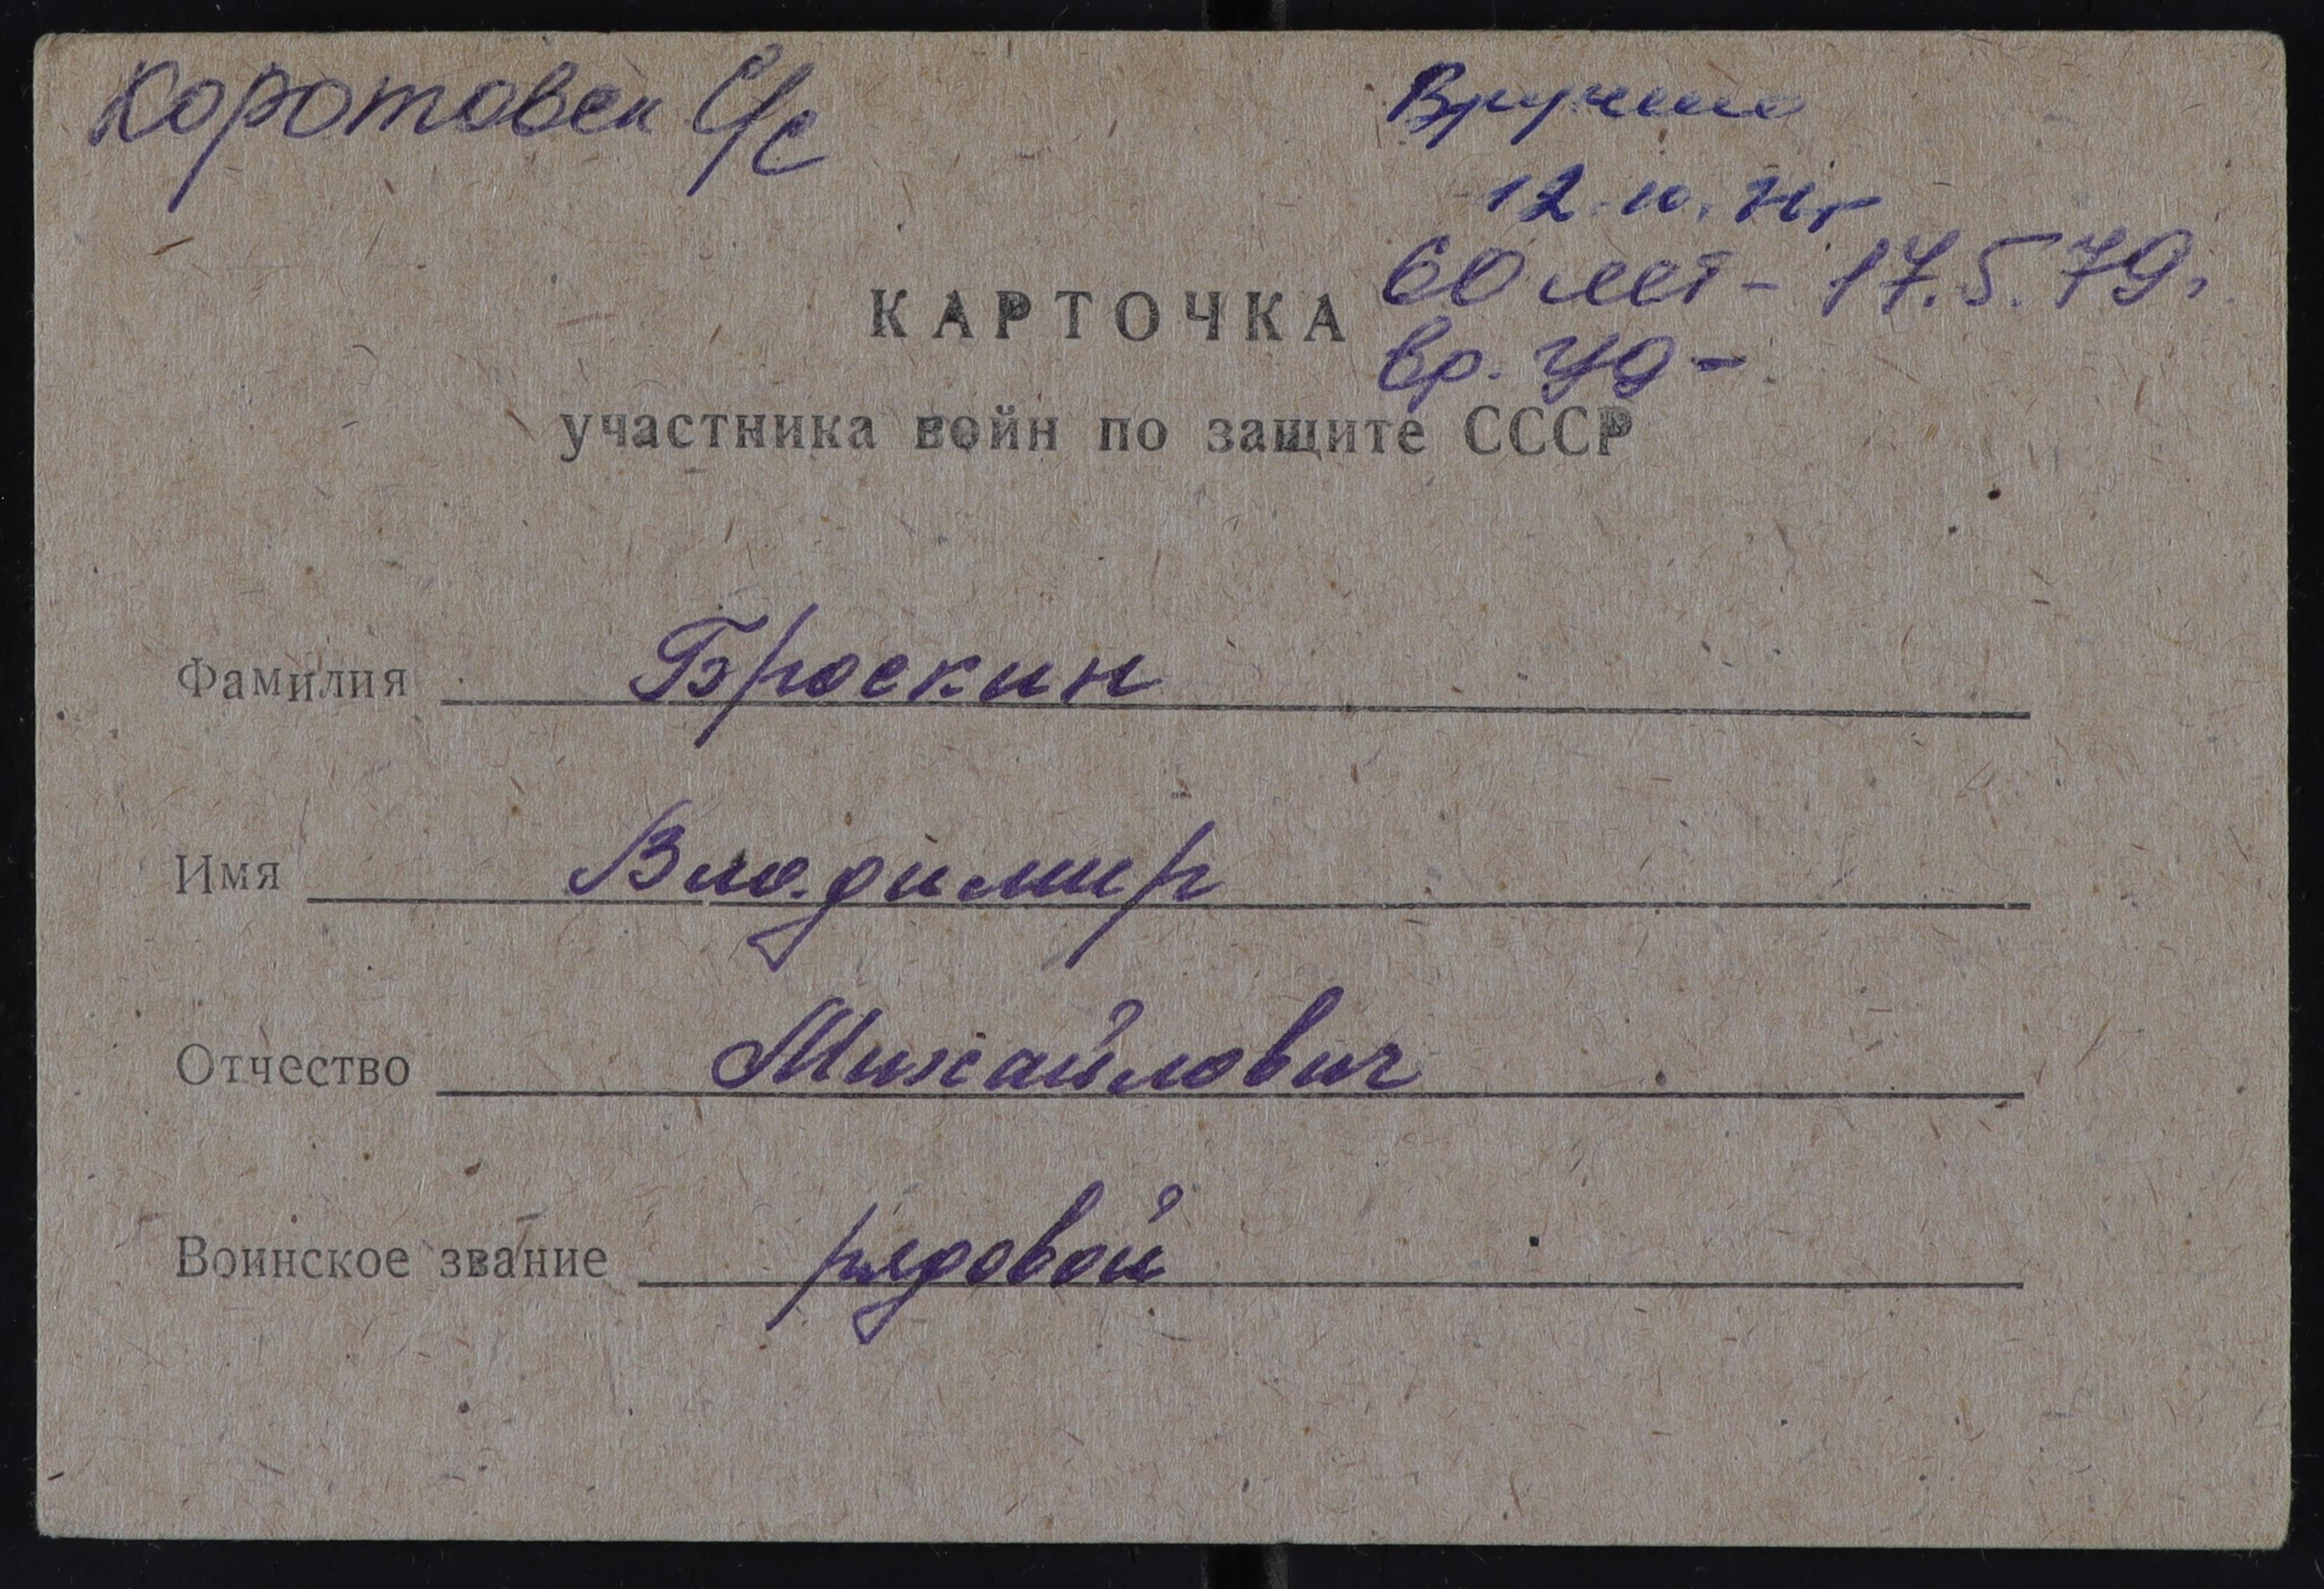 Коротовск С/с
Вручено
12.10.71г
60 лет - 17.5.79г.
КАРТОЧКА
вр. уд -
участника войн по защите СССР
Фамилия Броскин
Имя Владимир
Отчество Михайлович
Воинское звание рядовой